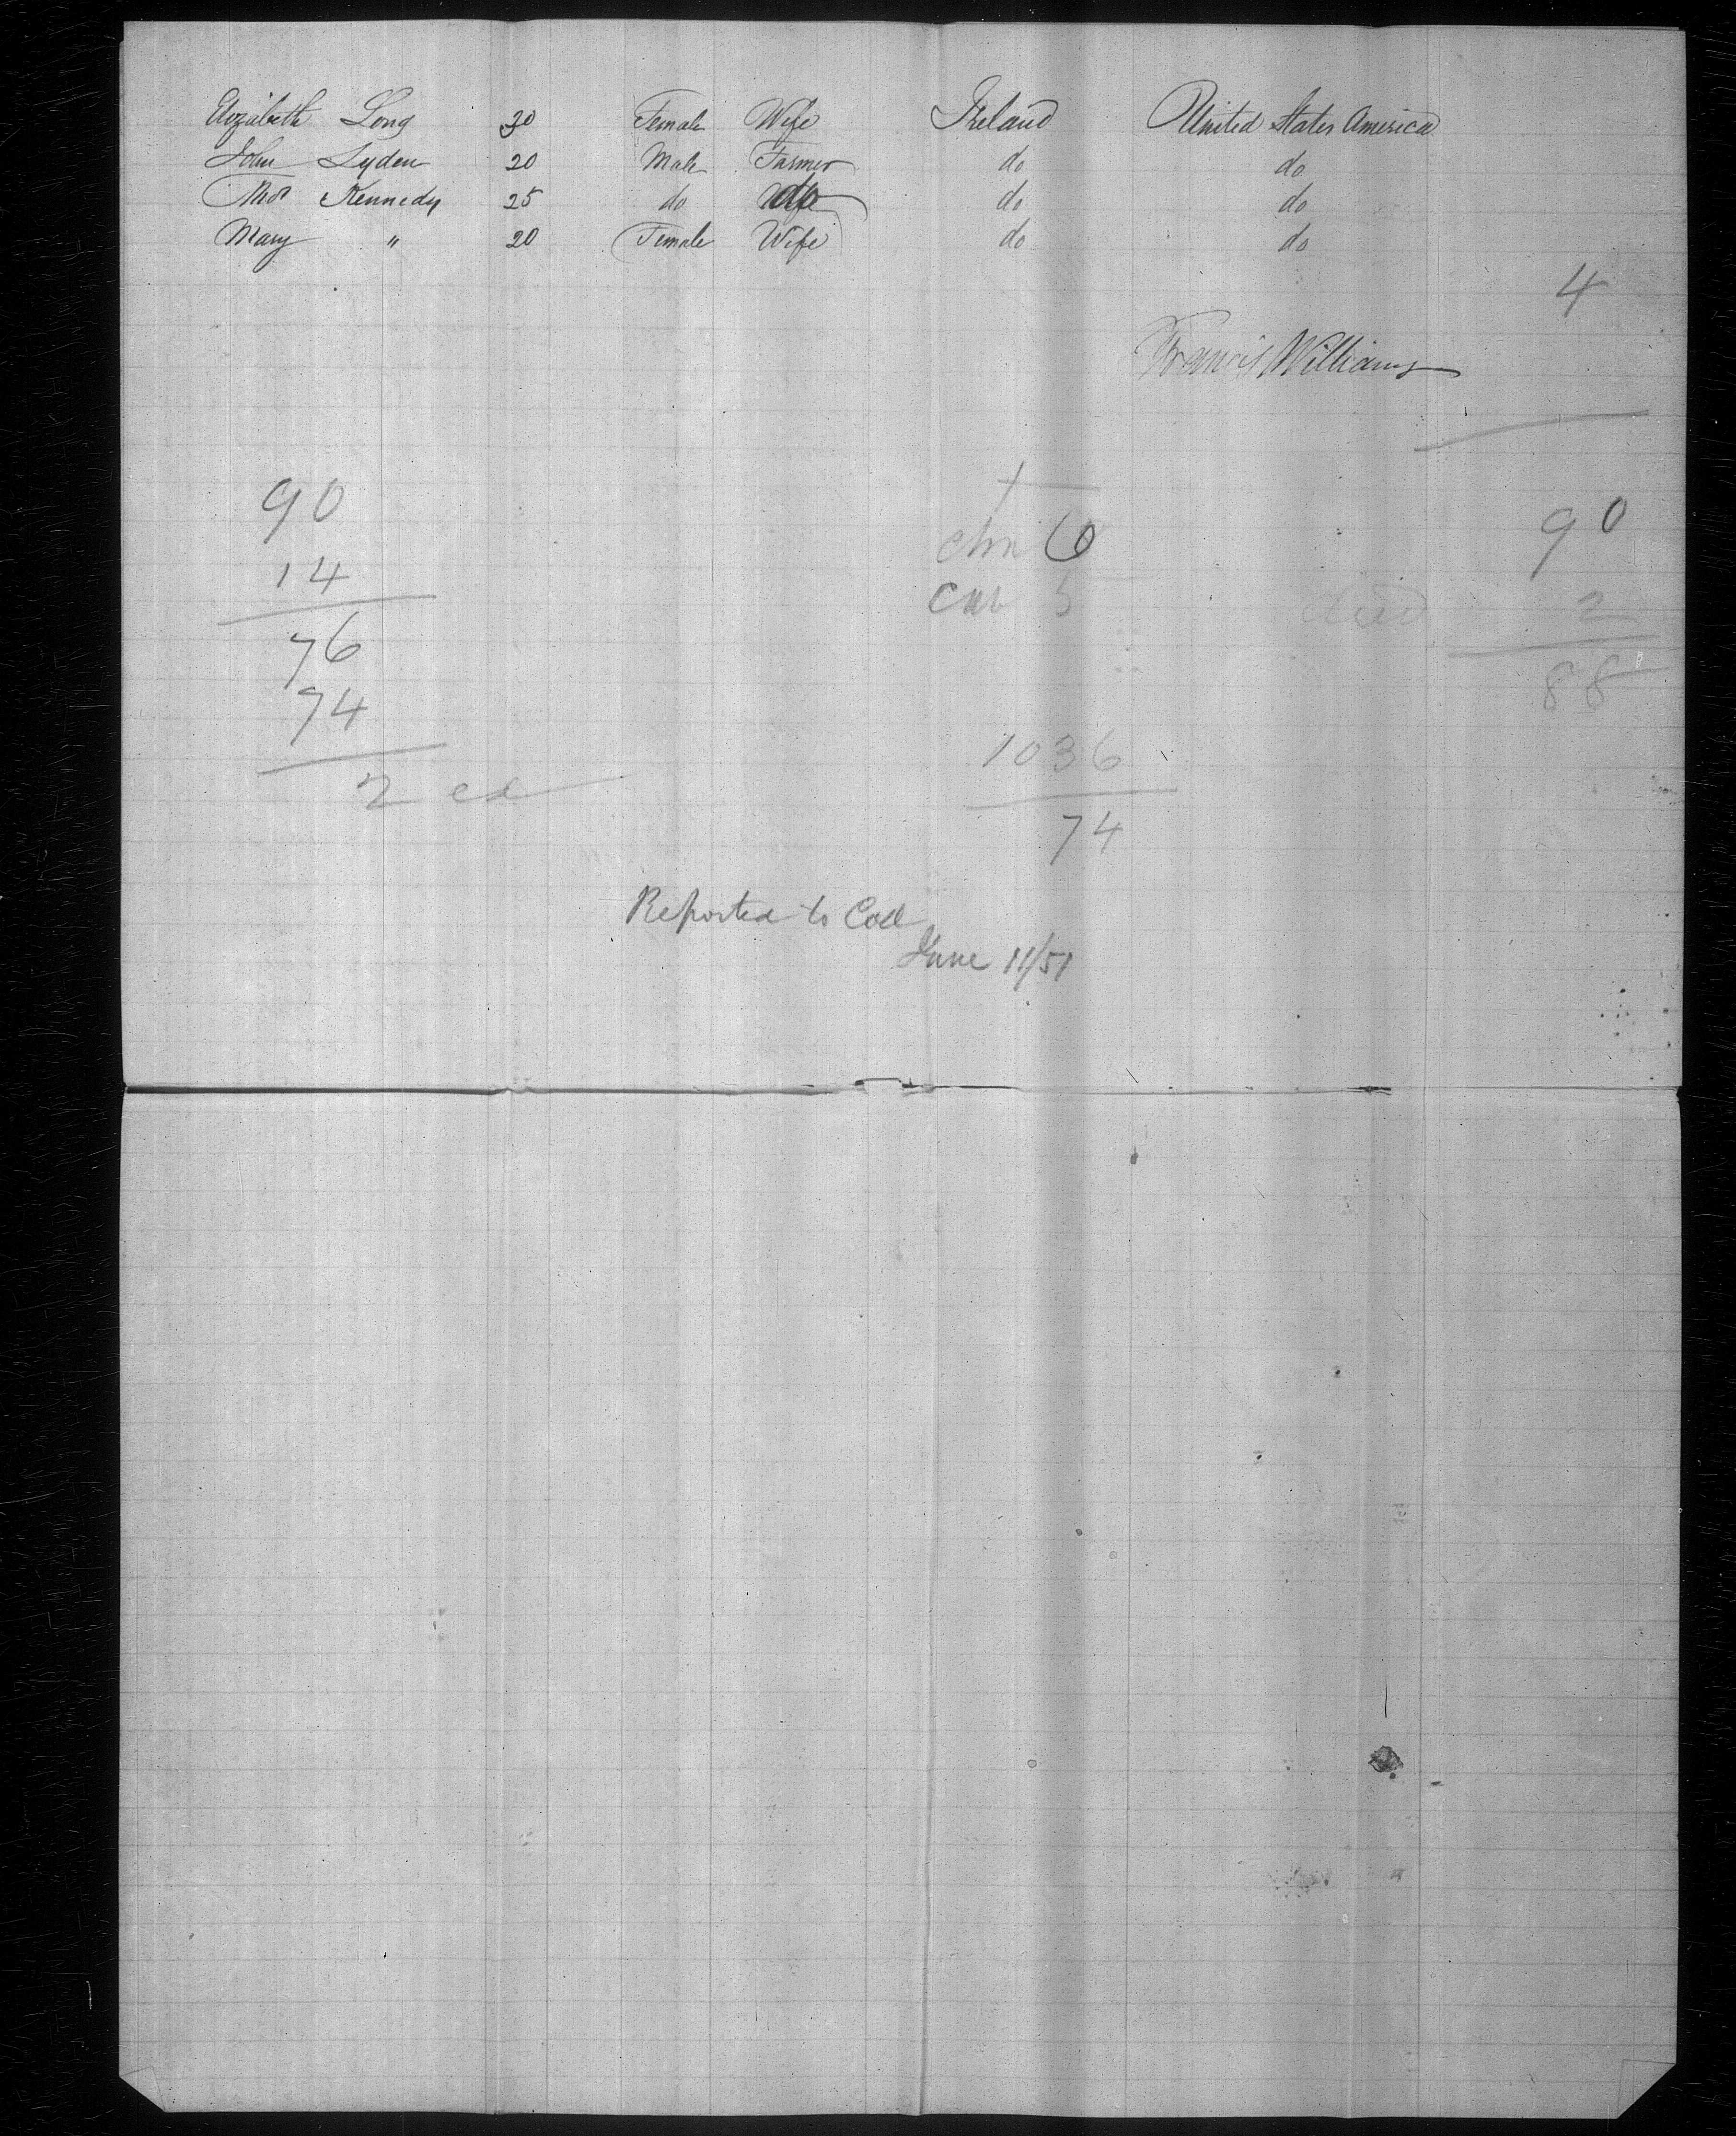 Elizabeth Long 30 Female Wife Ireland United States America
John Lyden 20 Male Farmer do do
Thos Kennedy 25 do do do do
Mary " 20 Female Wife do do
4
Francis Williams
90 chn 6 90
14 Cab 5 died 2
76 88
74
2 1036
74
Reported to Coll
June 11/51